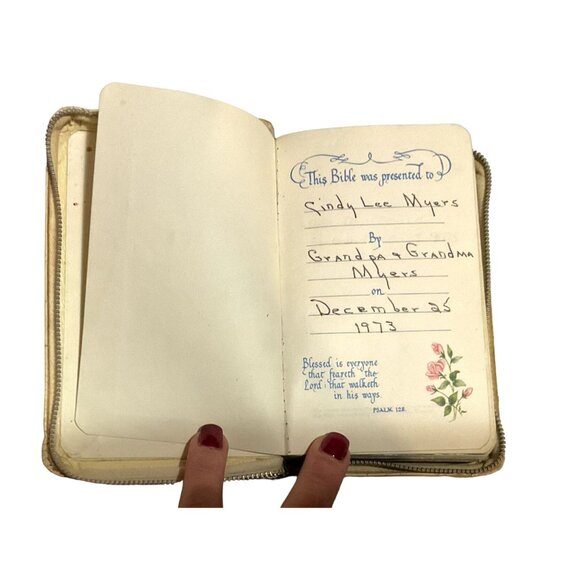 This Bible was presented to
Cindy Lee Myers
By
Grandpa & Grandma
Myers
on
December 25
1973
Blessed is everyone
that feareth the
Lord: that walketh
in his ways.
PSALM 128